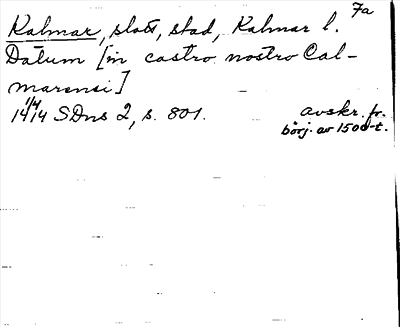 Fa
Kalmar, slott, stad, Kalmar l.
Datum [in castro nostro Cal-
marensi]
14 1/4 14 SDns 2, s. 801.
avskr. fr.
börj. av 1500-t.